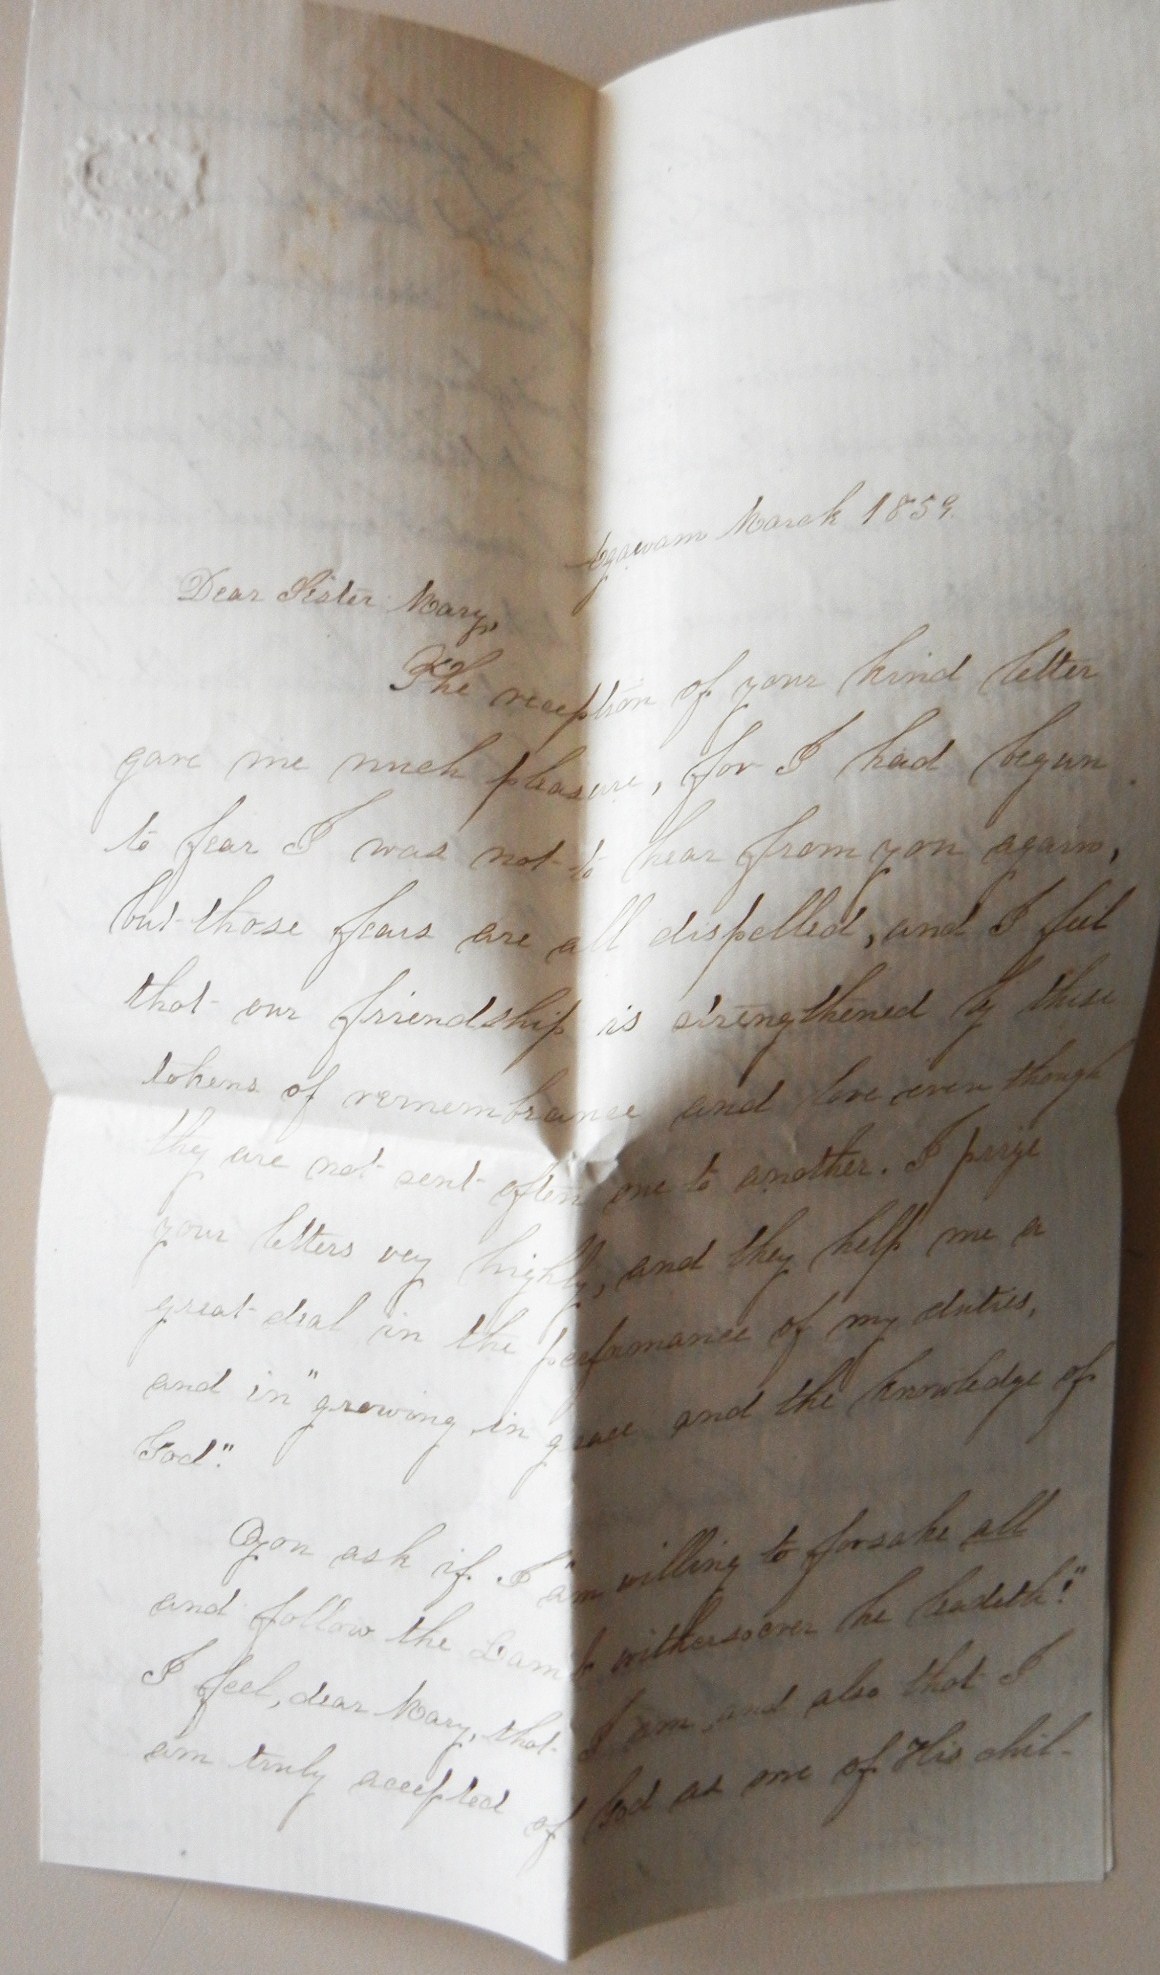 Agawam March 1859.
Dear Sister Mary,
The reception of your kind letter
gave me much pleasure, for I had begun
to fear I was not to hear from you again,
but those fears are all dispelled, and I feel
that our friendship is strengthened by these
tokens of remembrance and love even though
they are not sent often one to another. I prize
your letters very highly, and they help me a
great deal in the performance of my duties,
and in "growing in grace and the knowledge of
God".
You ask if I "am willing to forsake all
and follow the Lamb withersoever he leadeth!"
I feel, dear Mary, that I am, and also that I
am truly accepted of God as one of His chil-